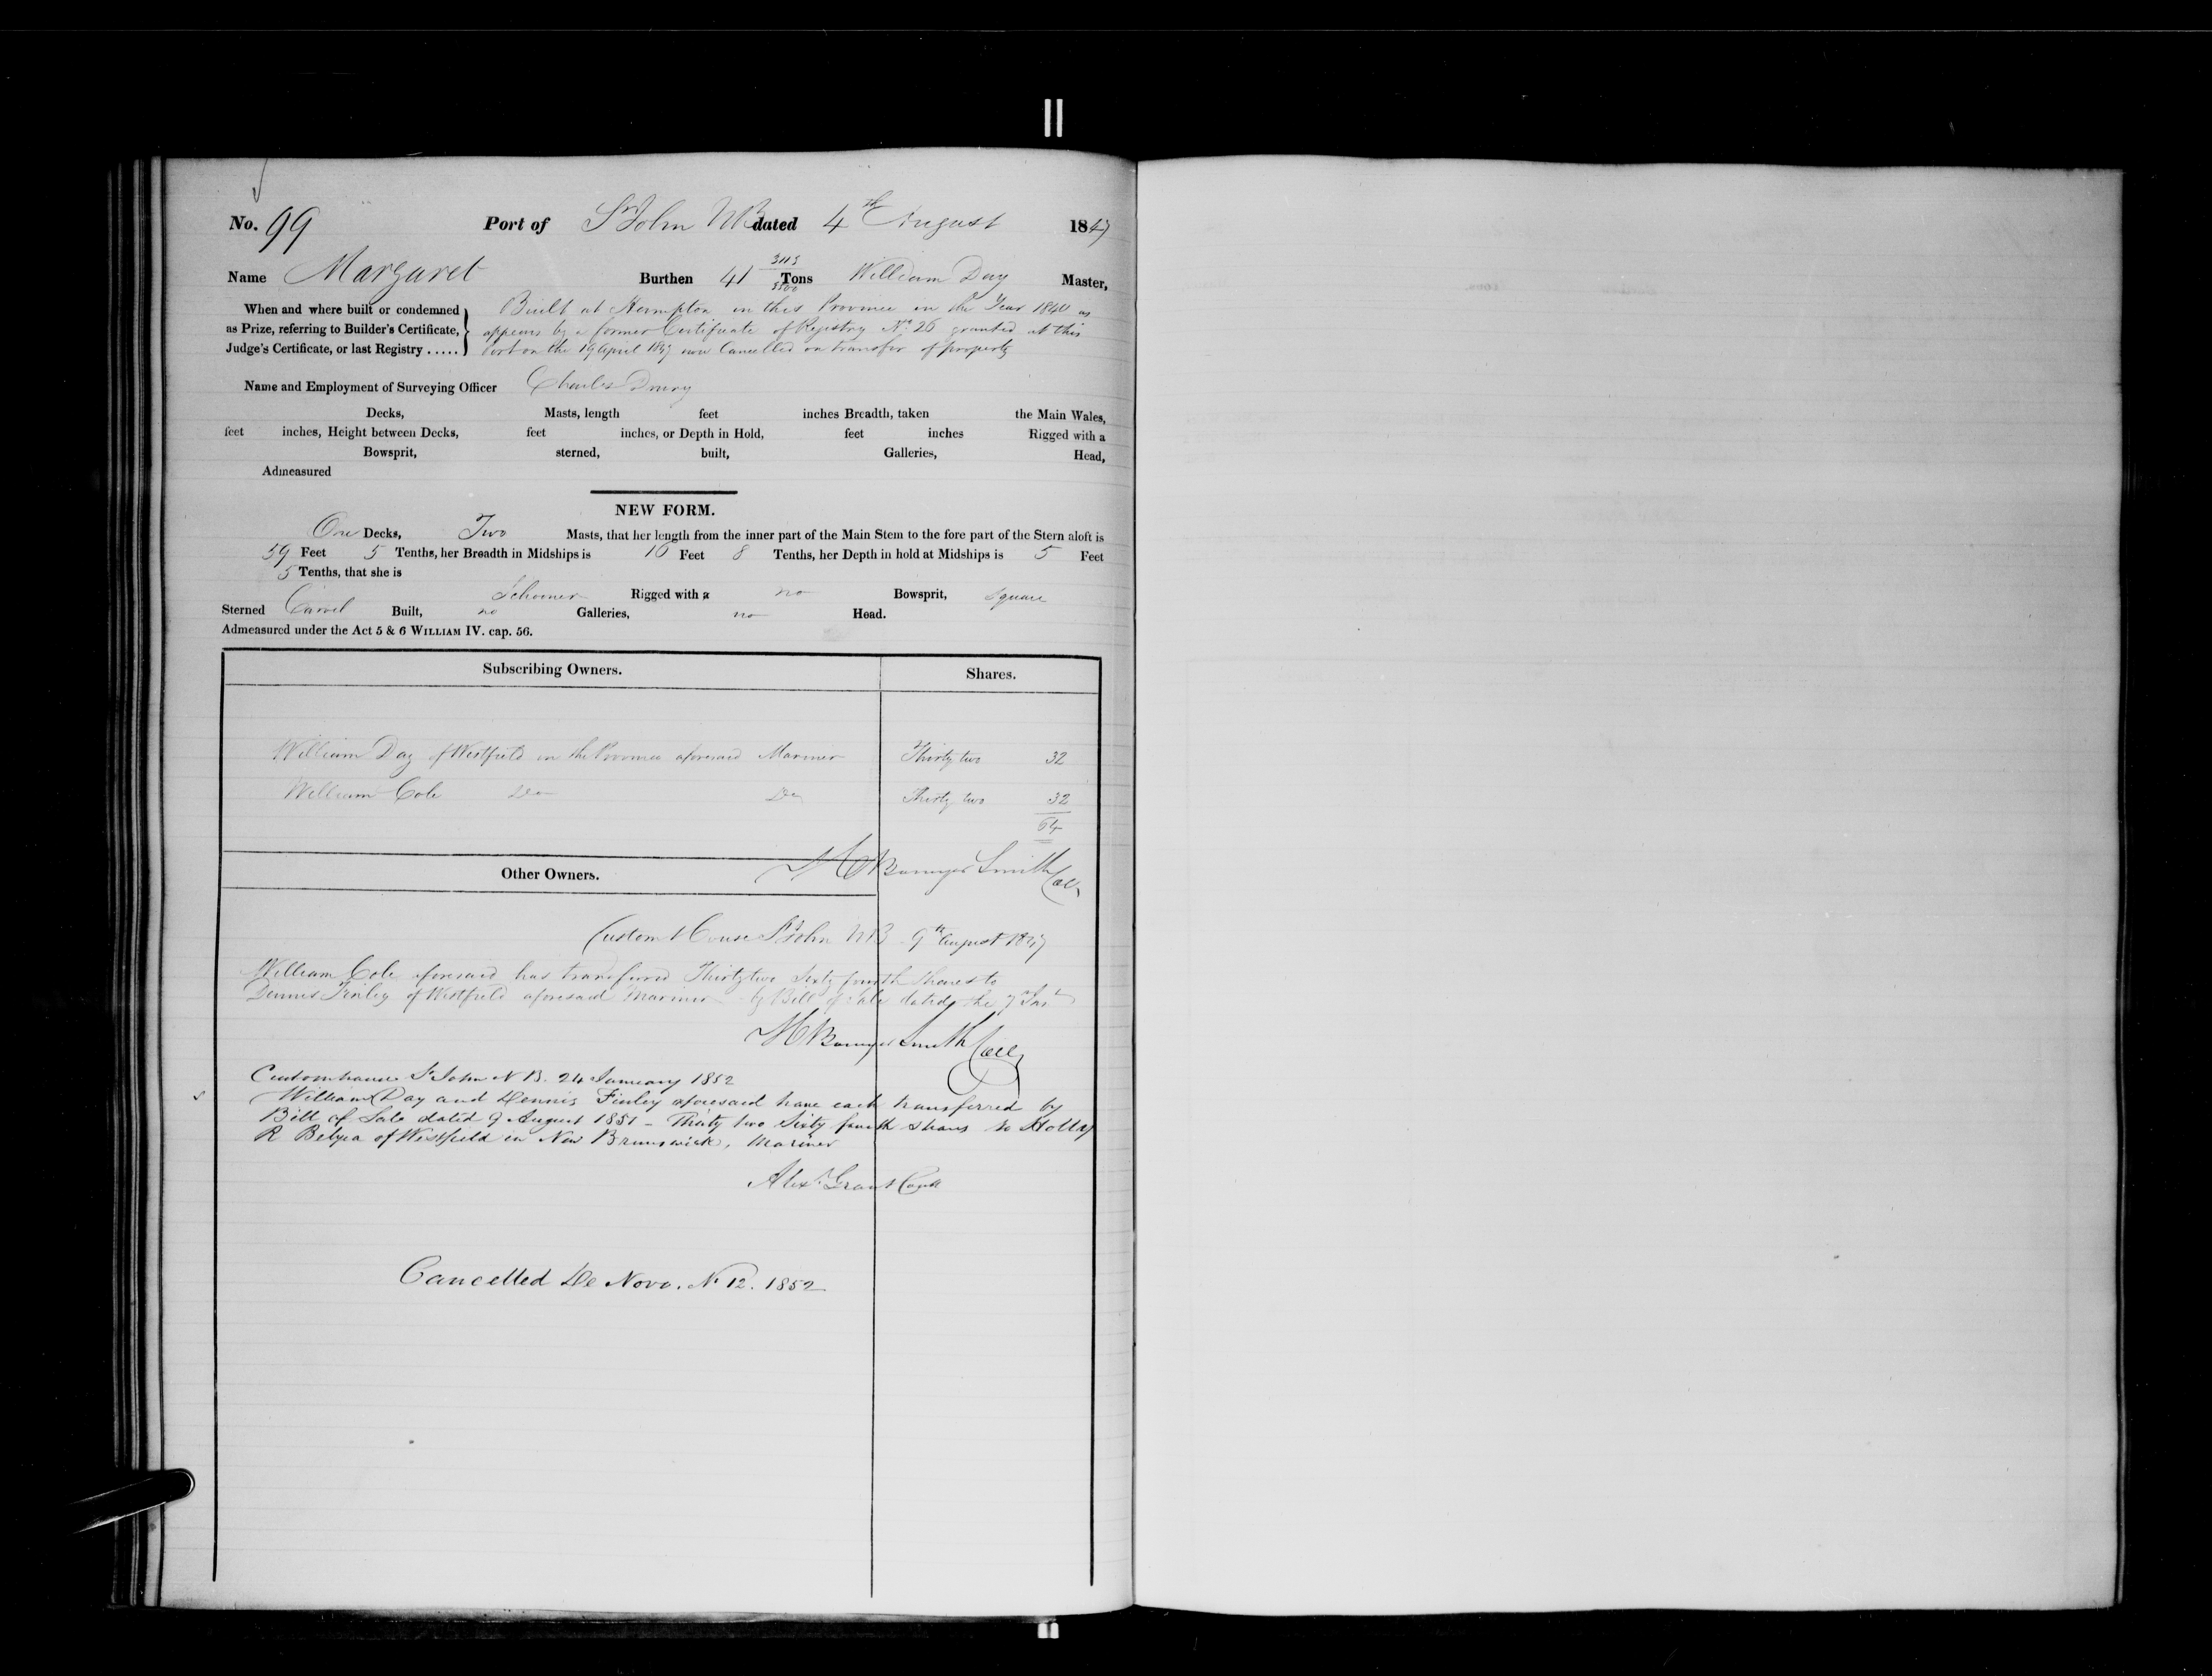 No. 99 Port of St John NB dated 4th August 1847
Name Margaret Burthen 41 Tons William Day Master,
When and where built or condemned as Prize, referring to Builder's Certificate, Judge's Certificate, or last Registry .....
Built at Hampton in this Province in the Year 1840 as
appears by a former Certificate of Registry No. 26 granted at this
Port on the 19 April 1847 now Cancelled on transfer of property
Name and Employment of Surveying Officer Charles Drury
Decks, Masts, length feet inches Breadth, taken the Main Wales,
feet inches, Height between Decks, feet inches, or Depth in Hold, feet inches Rigged with a
Bowsprit, sterned, built, Galleries, Head,
Admeasured
NEW FORM.
One Decks, Two Masts, that her length from the inner part of the Main Stem to the fore part of the Stern aloft is
59 Feet 5 Tenths, her Breadth in Midships is 16 Feet 8 Tenths, her Depth in hold at Midships is 5 Feet
5 Tenths, that she is
Schooner Rigged with a no Bowsprit, Square
Sterned Carvel Built, no Galleries, no Head.
Admeasured under the Act 5 & 6 WILLIAM IV. cap. 56.
Subscribing Owners. Shares.
William Day of Westfield in the Province aforesaid Mariner Thirty two 32
William Cole Do Do Thirty two 32
64
Smith Coll
Other Owners.
Custom House St John NB 9th August 1847
William Cole aforesaid has transferred Thirty two Sixty fourth Shares to
Dennis Finley of Westfield aforesaid Mariner by Bill of Sale dated the 7 Inst
Smith Coll
Customhouse St John N B. 24 January 1852
William Day and Dennis Finley aforesaid have each transferred by
Bill of Sale dated 9 August 1851 - Thirty two Sixty fourth shares to Holly
R Belyea of Westfield in New Brunswick, Mariner
Alexr. Grant
Cancelled De Novo. No 12. 1852